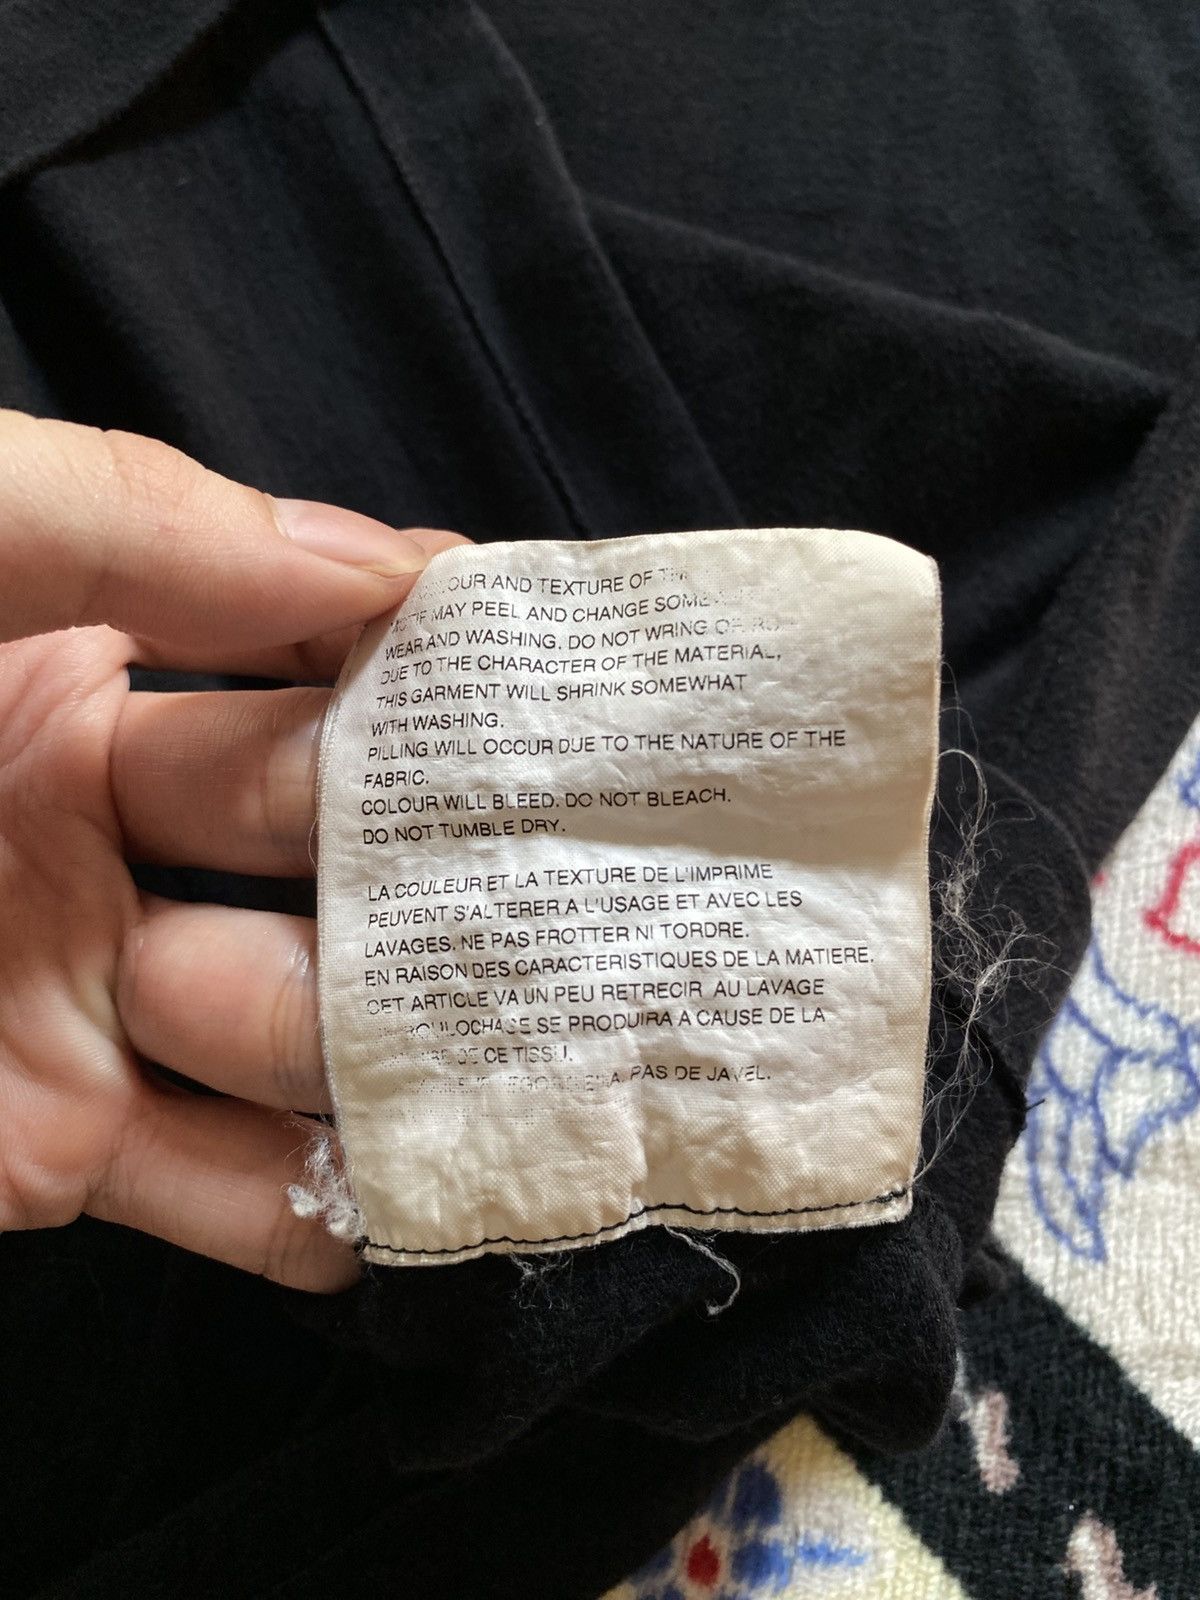 OUR AND TEXTURE OF
MAY PEEL AND CHANGE
WEAR AND WASHING. DO NOT WRING OR
DUE TO THE CHARACTER OF THE MATERIAL,
THIS GARMENT WILL SHRINK SOMEWHAT
WITH WASHING.
PILLING WILL OCCUR DUE TO THE NATURE OF THE
FABRIC.
COLOUR WILL BLEED. DO NOT BLEACH.
DO NOT TUMBLE DRY.
LA COULEUR ET LA TEXTURE DE L'IMPRIME
PEUVENT S'ALTERER A L'USAGE ET AVEC LES
LAVAGES. NE PAS FROTTER NI TORDRE.
EN RAISON DES CARACTERISTIQUES DE LA MATIERE.
CET ARTICLE VA UN PEU RETRECIR AU LAVAGE
SE PRODUIRA A CAUSE DE LA
DE CE TISSU.
PAS DE JAVEL.